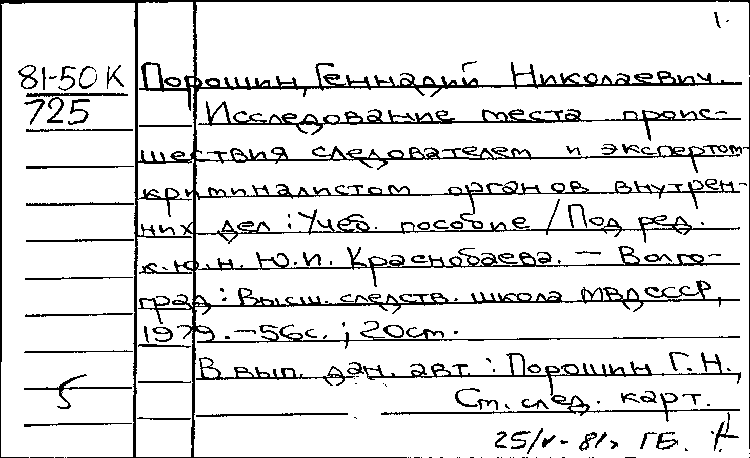 1.
81-50К Порошин, Геннадий Николаевич.
725 Исследование места проис-
шествия следователем и экспертом-
криминалистом органов внутрен-
них дел : Учеб. пособие / Под ред.
к.ю.н. Ю.И. Краснобаева. — Волго-
град : Высш. следств. школа МВД СССР,
1979. — 56с. ; 20см.
В вып. дан. авт. : Порошин Г.Н.,
5 См. след. карт.
25/V - 81г ГБ.